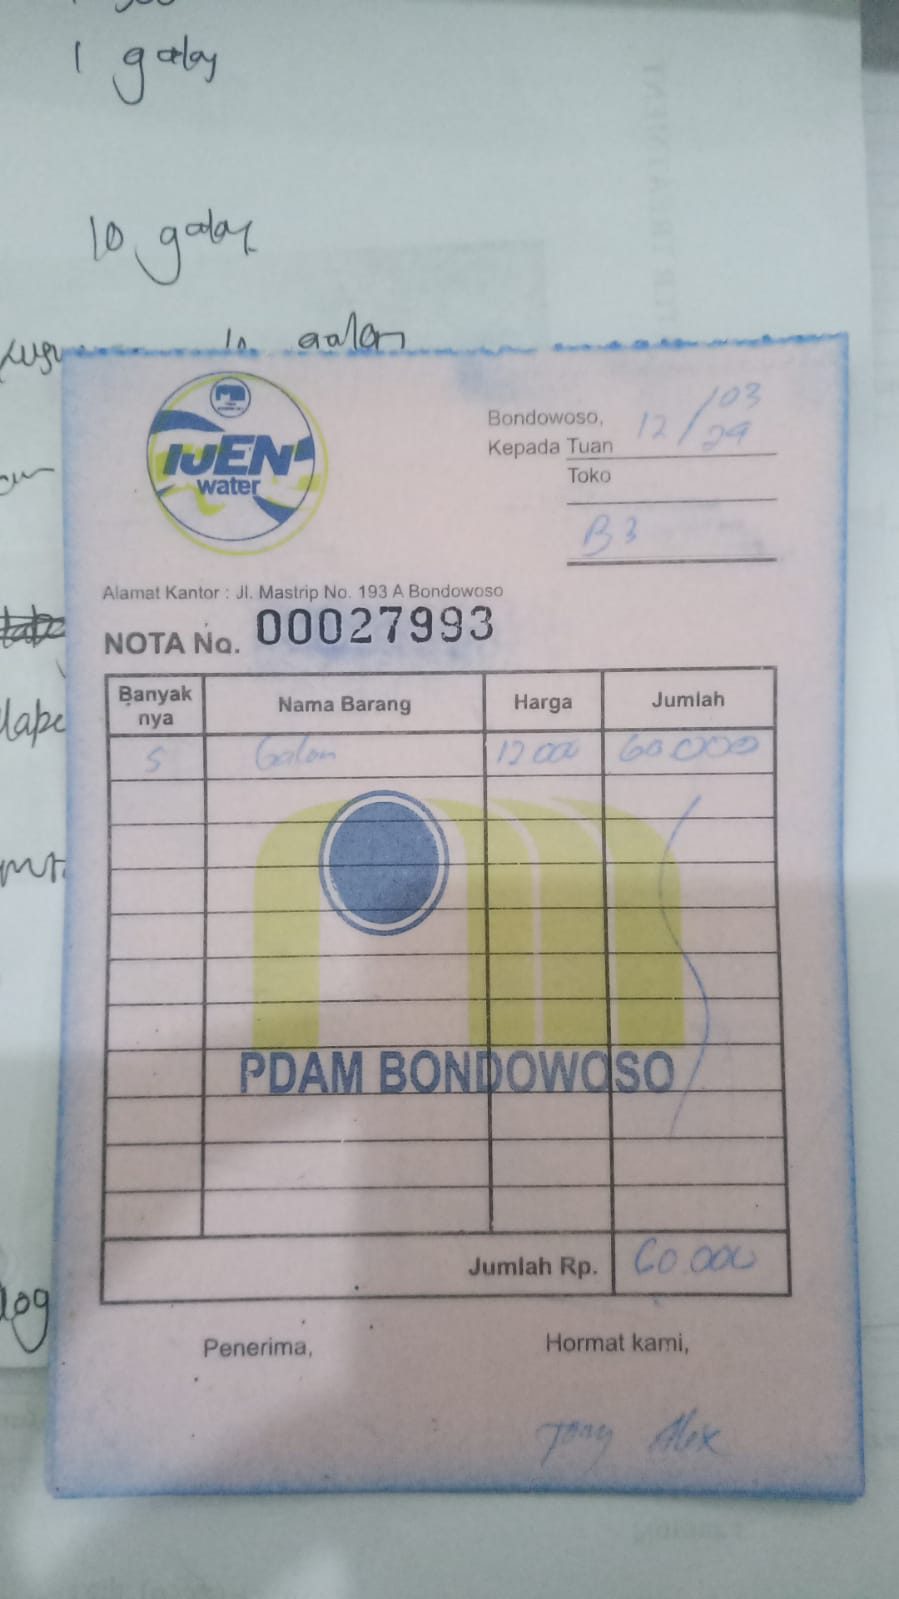 1 galon
10 galon
10 galon
IJEN
water
Bondowoso, 12/03
Kepada Tuan
Toko
B3
Alamat Kantor : Jl. Mastrip No. 193 A Bondowoso
NOTA No. 00027993
Banyak nya Nama Barang Harga Jumlah
5 Galon 12 000 60.000
PDAM BONDOWOSO
Jumlah Rp. 60.000
Penerima, Hormat kami,
Alex